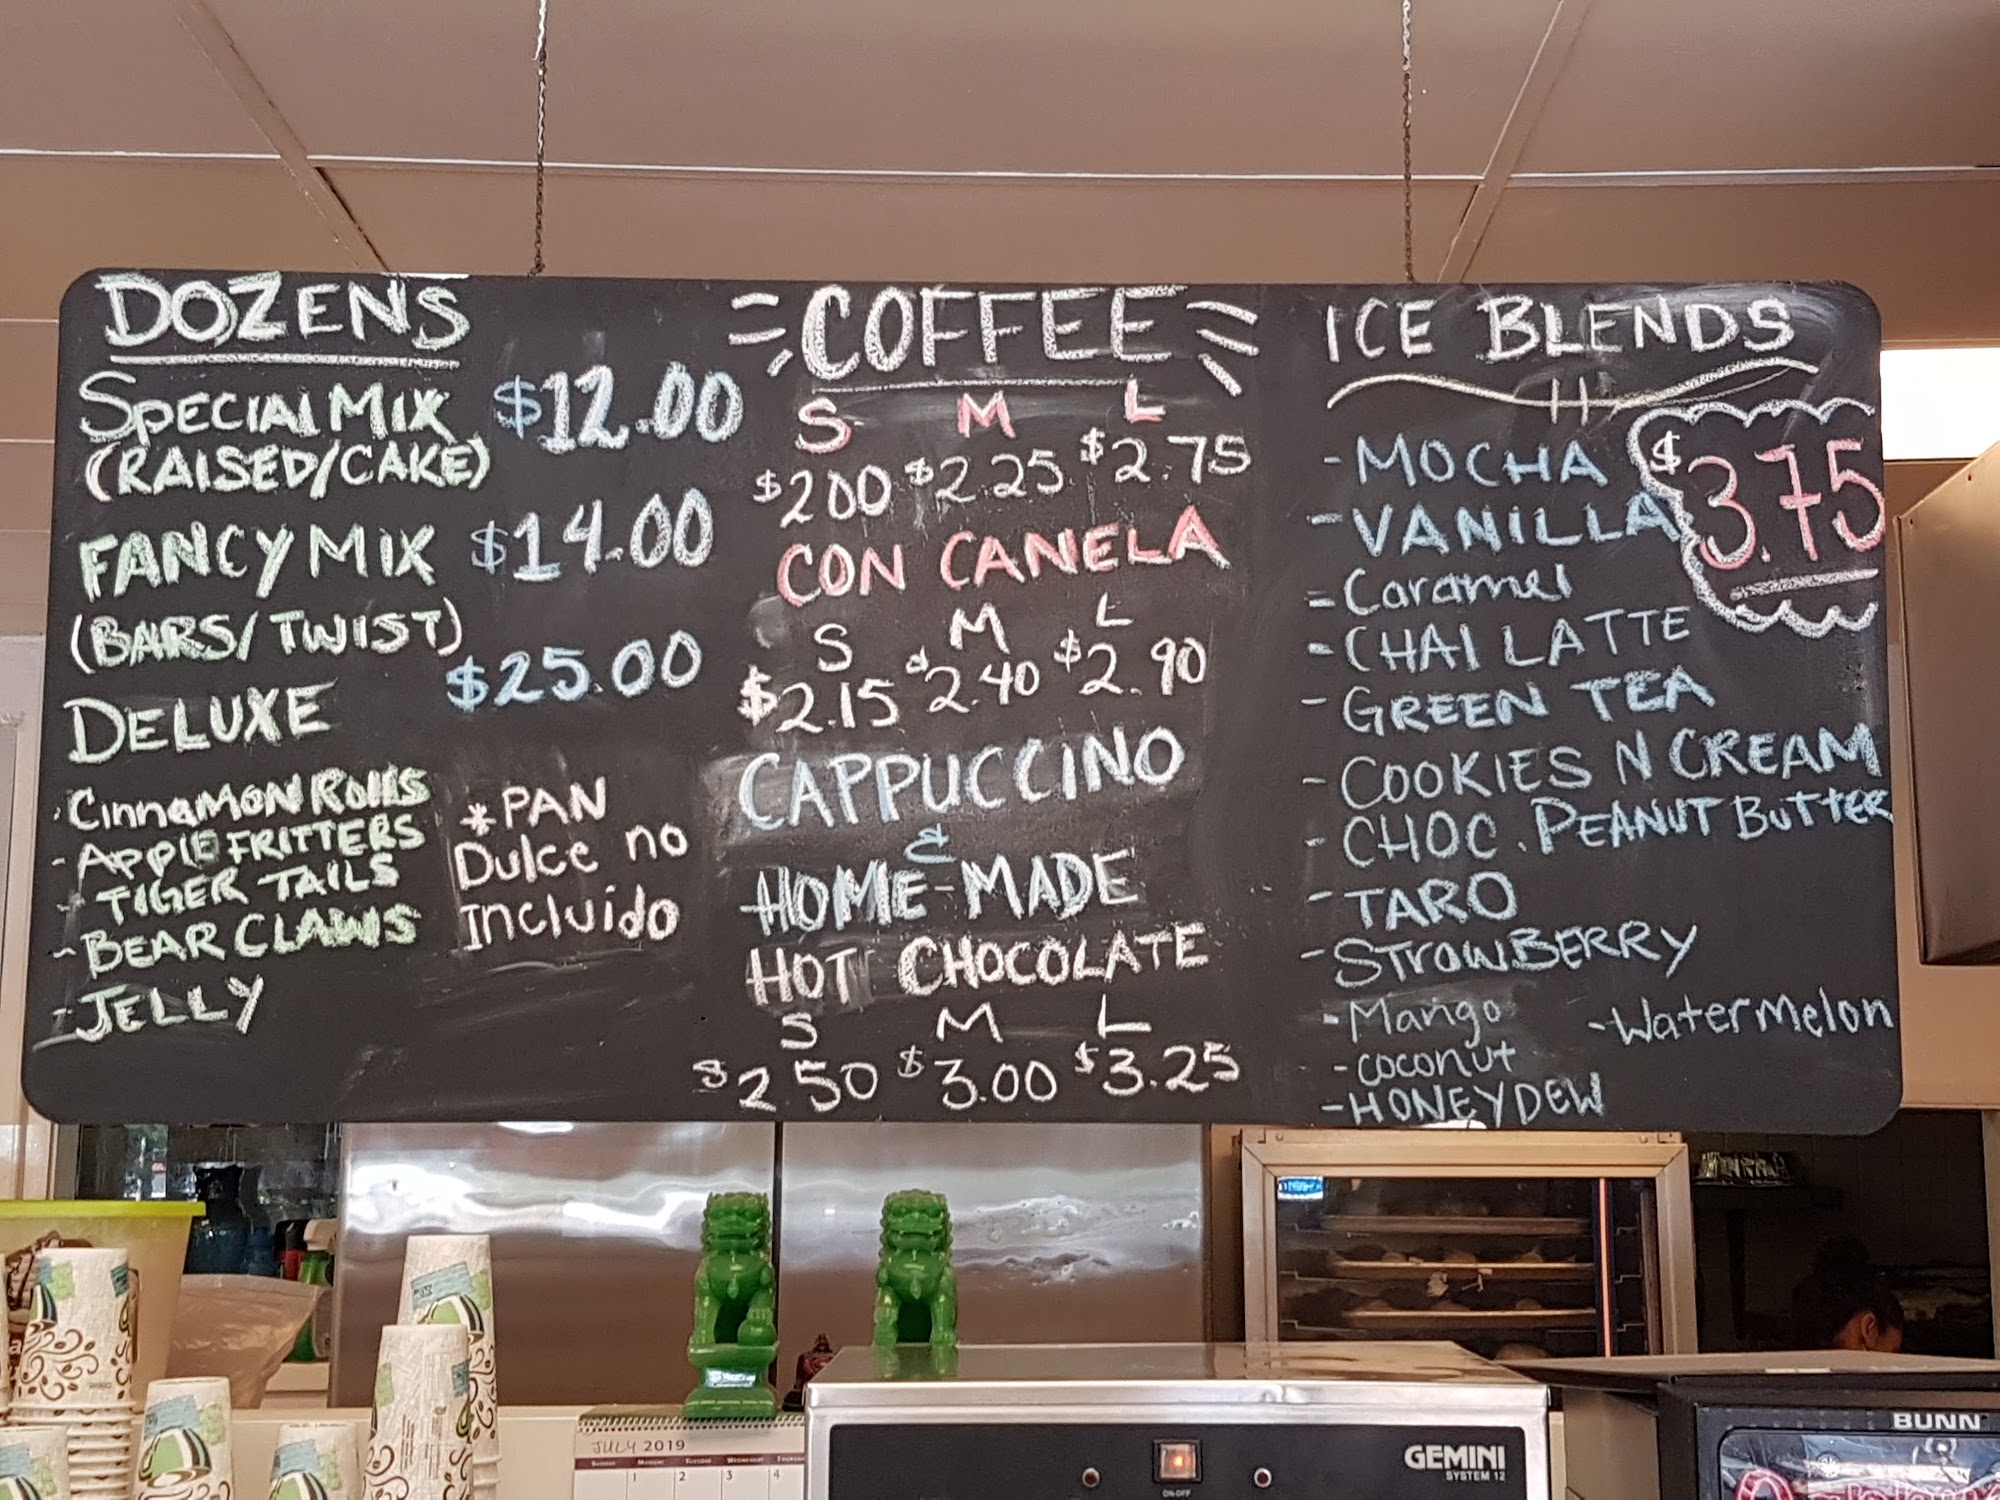 DOZENS
SPECIAL MIX $12.00
(RAISED/CAKE)
FANCY MIX $14.00
(BARS/TWIST)
DELUXE $25.00
- Cinnamon Rolls
- APPLE FRITTERS
- TIGER TAILS
- BEAR CLAWS
- JELLY
*PAN
Dulce no
Incluido
COFFEE
S M L
$200 $2.25 $2.75
CON CANELA
S M L
$2.15 $2.40 $2.90
CAPPUCCINO
&
HOME-MADE
HOT CHOCOLATE
S M L
$2.50 $3.00 $3.25
ICE BLENDS
$3.75
- MOCHA
- VANILLA
- Caramel
- CHAI LATTE
- GREEN TEA
- COOKIES N CREAM
- CHOC. PEANUT BUTTER
- TARO
- STRAWBERRY
- Mango - Watermelon
- coconut
- HONEYDEW
JULY 2019
SUNDAY MONDAY TUESDAY WEDNESDAY THURSDAY
1 2 3 4
GEMINI
SYSTEM 12
ON-OFF
BUNN